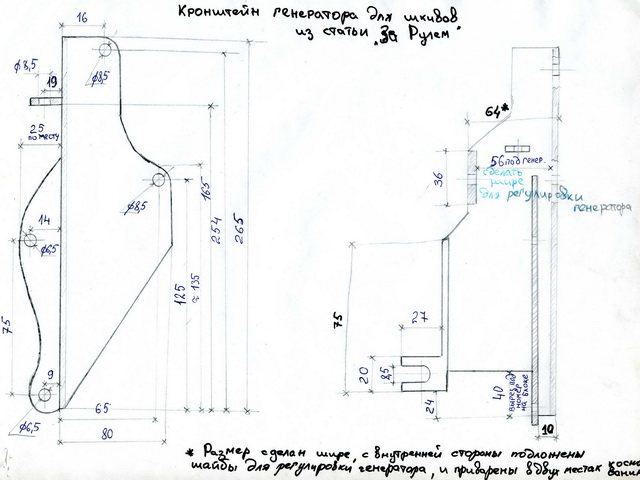 Кронштейн генератора для шкивов
из статьи "За Рулем"
16
φ8,5
φ8,5
19
25
по месту
14
φ6,5
φ8,5
75
9
φ6,5
65
80
125
≈ 135
165
254
265
64*
56 под генер.
сделать
шире
для регулировки
генератора
36
75
27
20
8,5
24
40
вырез под
номер
на блоке
10
* Размер сделан шире, с внутренней стороны подложены
шайбы для регулировки генератора, и приварены в двух местах